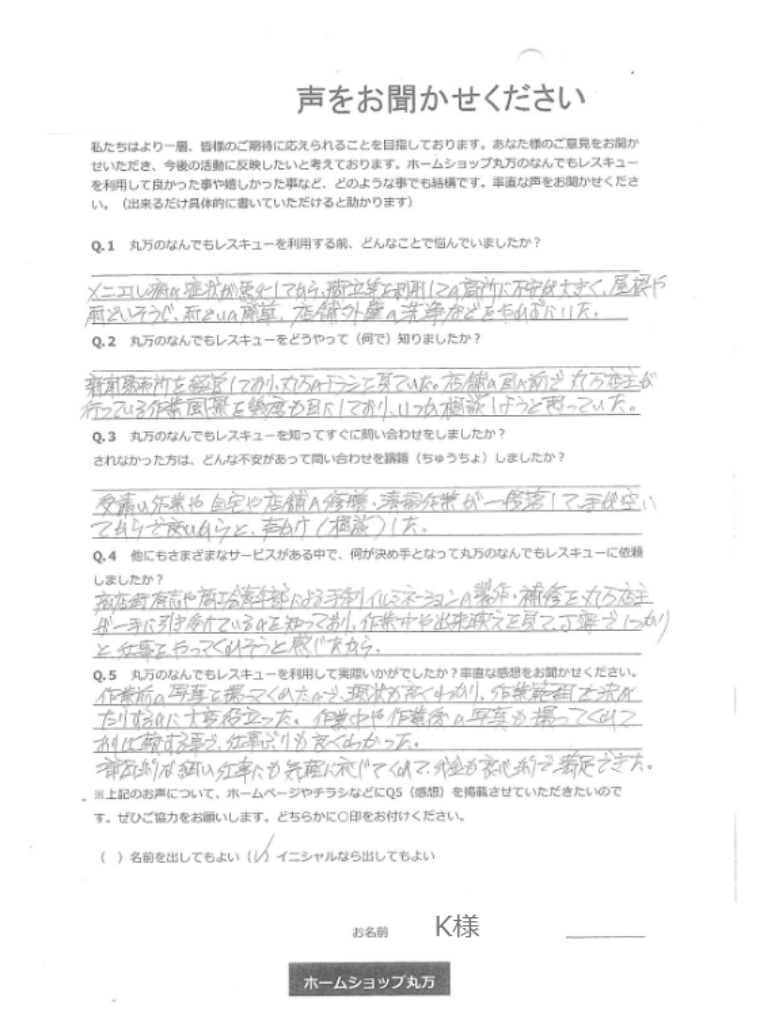 声をお聞かせください
私たちはより一層、皆様のご期待に応えられることを目指しております。あなた様のご意見をお聞か
せいただき、今後の活動に反映したいと考えております。ホームショップ丸万のなんでもレスキュー
を利用して良かった事や嬉しかった事など、どのような事でも結構です。率直な声をお聞かせくださ
い。（出来るだけ具体的に書いていただけると助かります）
Q.1 丸万のなんでもレスキューを利用する前、どんなことで悩んでいましたか？
メニエル病の症状が悪化してから、脚立等を利用しての高所に不安が大きく、屋根や
雨どいそうじ、雨どいの 店舗外壁の洗浄などをやれずにいた。
Q.2 丸万のなんでもレスキューをどうやって（何で）知りましたか？
を経営しており、丸万のチラシを見ていた。店舗の目の前で丸万店主が
行っている作業風景を幾度も目にしており、いつか相談しようと思っていた。
Q.3 丸万のなんでもレスキューを知ってすぐに問い合わせをしましたか？
されなかった方は、どんな不安があって問い合わせを躊躇（ちゅうちょ）しましたか？
作業や自宅や店舗の修繕・清掃作業が一段落して、手が空い
てからで良いからと、声かけ（相談）した。
Q.4 他にもさまざまなサービスがある中で、何が決め手となって丸万のなんでもレスキューに依頼
しましたか？
商店街有志や商工会青年部による手作りイルミネーションの製作・補修を丸万店主
が一手に引き受けているのを知っており、作業中や出来映えを見て、丁寧でしっかり
と仕事をやってくれそうと感じたから。
Q.5 丸万のなんでもレスキューを利用して実際いかがでしたか？率直な感想をお聞かせください。
作業前の写真を撮ってくれたので、現状が良くわかり、作業範囲を決め
たりするのに大変役立った。作業中や作業後の写真も撮ってくれて
おり比較する事で、仕事ぶりも良くわかった。
細い仕事にも気軽に応じてくれて、料金も良心的で満足できた。
※上記のお声について、ホームページやチラシなどにQ5（感想）を掲載させていただきたいので
す。ぜひご協力をお願いします。どちらかに〇印をお付けください。
（ ）名前を出してもよい（ ）イニシャルなら出してもよい
お名前 K様
ホームショップ丸万